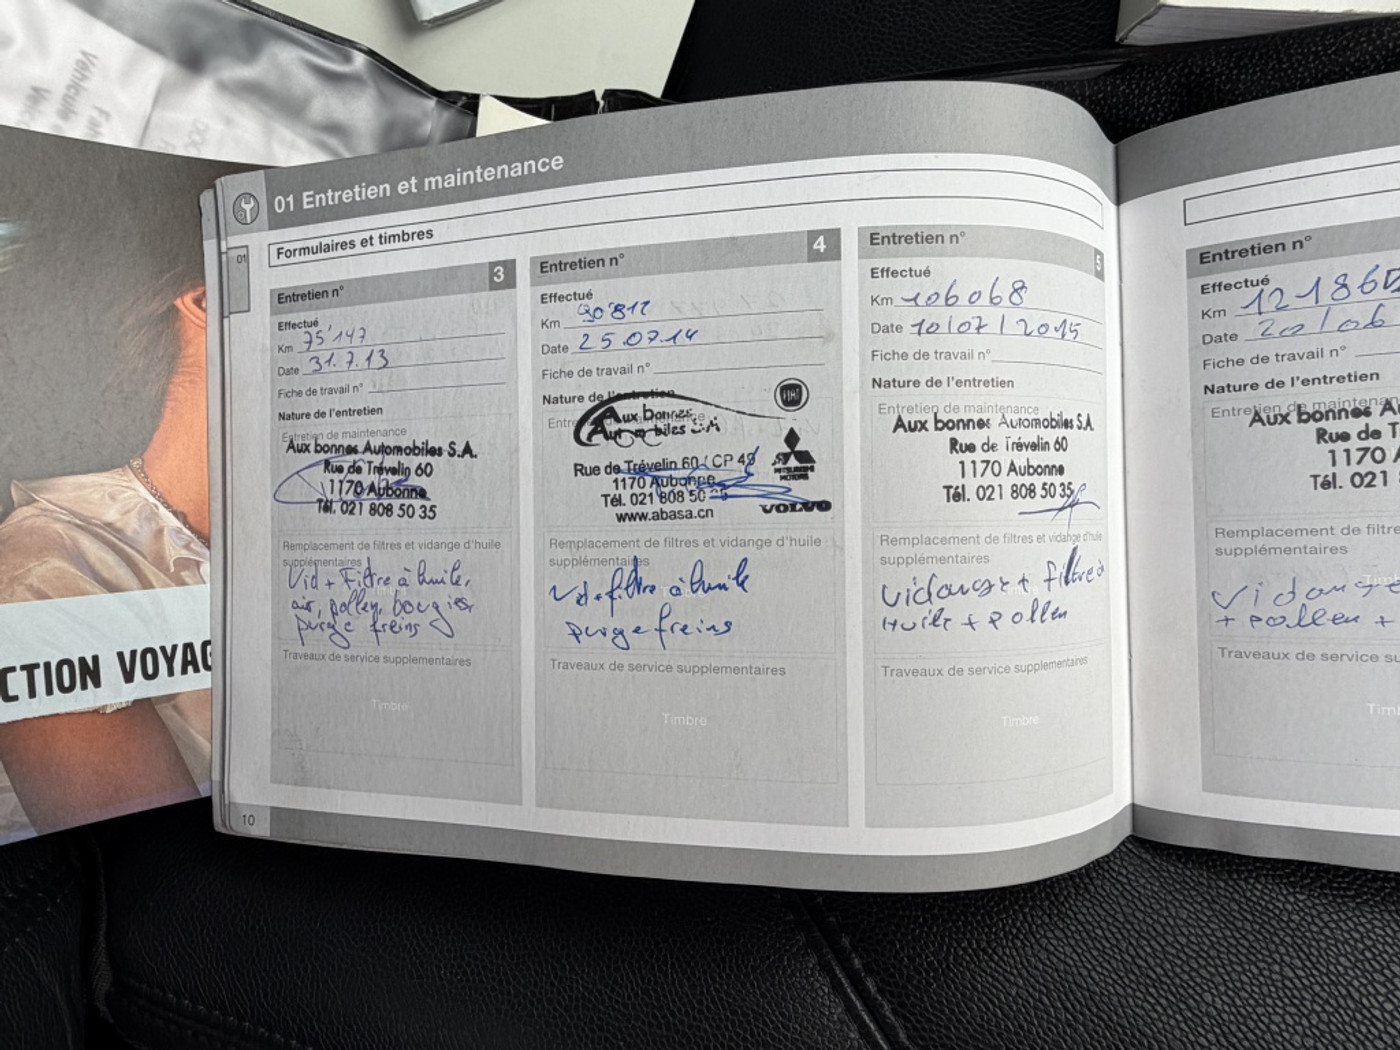 01 Entretien et maintenance
01
Formulaires et timbres
Entretien n° 3
Effectué
Km 75'147
Date 31.7.13
Fiche de travail n°
Nature de l'entretien
Entretien de maintenance
Aux bonnes Automobiles S.A.
Rue de Trévelin 60
1170 Aubonne
Tél. 021 808 50 35
Remplacement de filtres et vidange d'huile
supplémentaires
Vid + Filtre à huile,
air, pollen, bougies,
purge freins
Traveaux de service supplementaires
Timbre
Entretien n° 4
Effectué
Km 90'812
Date 25.07.14
Fiche de travail n°
Nature de l'entretien
Aux bonnes
Automobiles S.A
FIAT
Rue de Trévelin 60 / CP 49
1170 Aubonne
Tél. 021 808 50
www.abasa.cn
MITSUBISHI
MOTORS
VOLVO
Remplacement de filtres et vidange d'huile
supplémentaires
Vid + filtre à huile
purge freins
Traveaux de service supplementaires
Timbre
Entretien n° 5
Effectué
Km 106068
Date 10/07/2015
Fiche de travail n°
Nature de l'entretien
Entretien de maintenance
Aux bonnes Automobiles S.A.
Rue de Trévelin 60
1170 Aubonne
Tél. 021 808 50 35
Remplacement de filtres et vidange d'huile
supplémentaires
Vidange + filtre à
Huile + pollen
Traveaux de service supplementaires
Timbre
10
Entretien n°
Effectué
Km 121860
Date 20/06
Fiche de travail n°
Nature de l'entretien
Entretien de maintenan
Aux bonnes A
Rue de T
1170 A
Tél. 021
Remplacement de filtres
supplémentaires
Vidange
+ pollen +
Traveaux de service su
Timb
CTION VOYAG